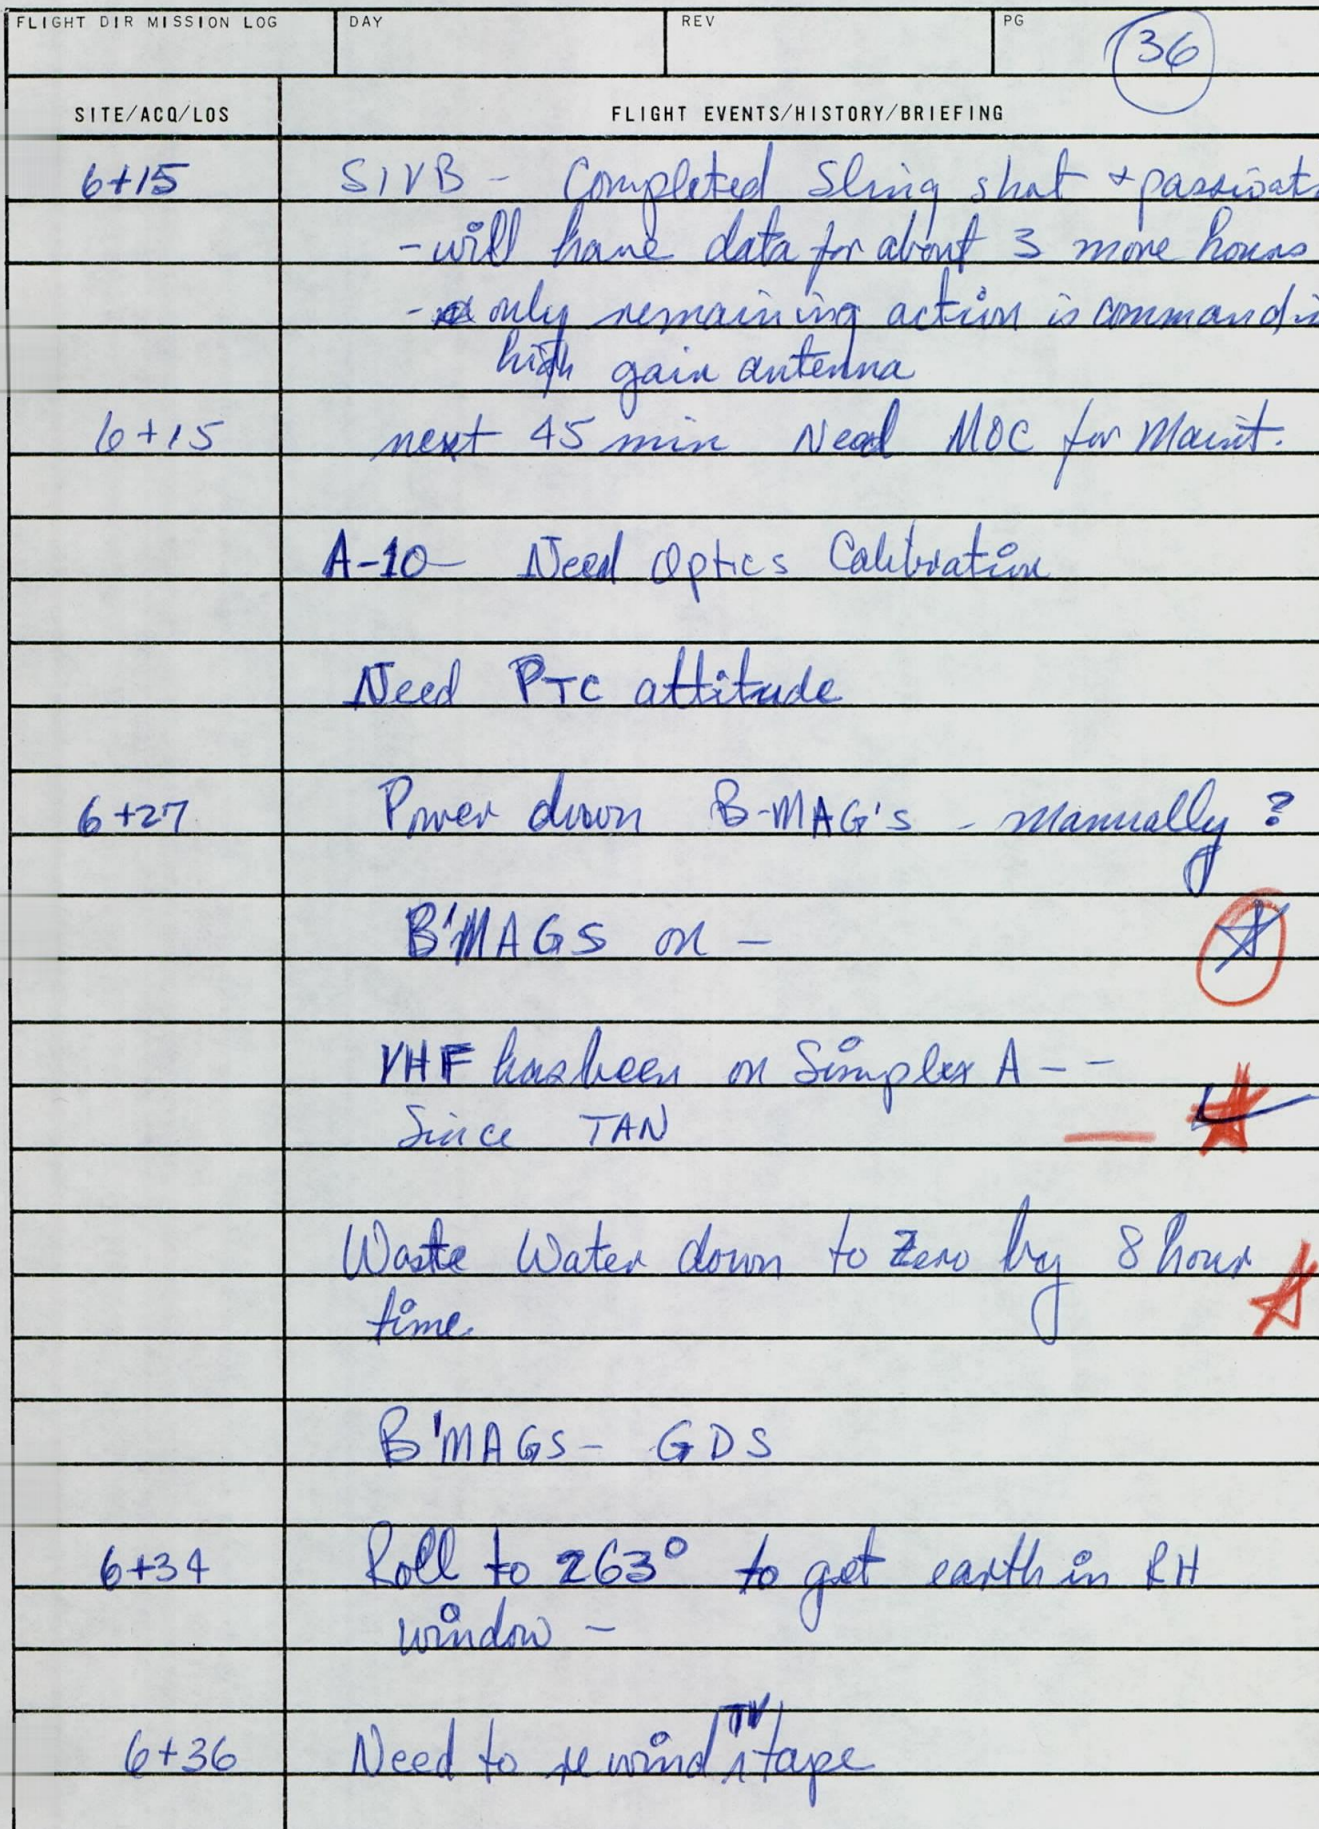 FLIGHT DIR MISSION LOG DAY REV PG 36
SITE/ACQ/LOS FLIGHT EVENTS/HISTORY/BRIEFING
6+15 SIVB - Completed Sling shot + passivat
- will have data for about 3 more hours
- only remaining action is command
high gain antenna
6+15 next 45 min Need MOC for Maint.
A-10 - Need Optics Calibration
Need PTC attitude
6+27 Power down B-MAG's - manually?
B'MAGS on -
VHF has been on Simplex A - -
Since TAN
Waste Water down to Zero by 8 hour
time.
B'MAGS - GDS
6+34 Roll to 263° to get earth in RH
window -
6+36 Need to rewind TV tape